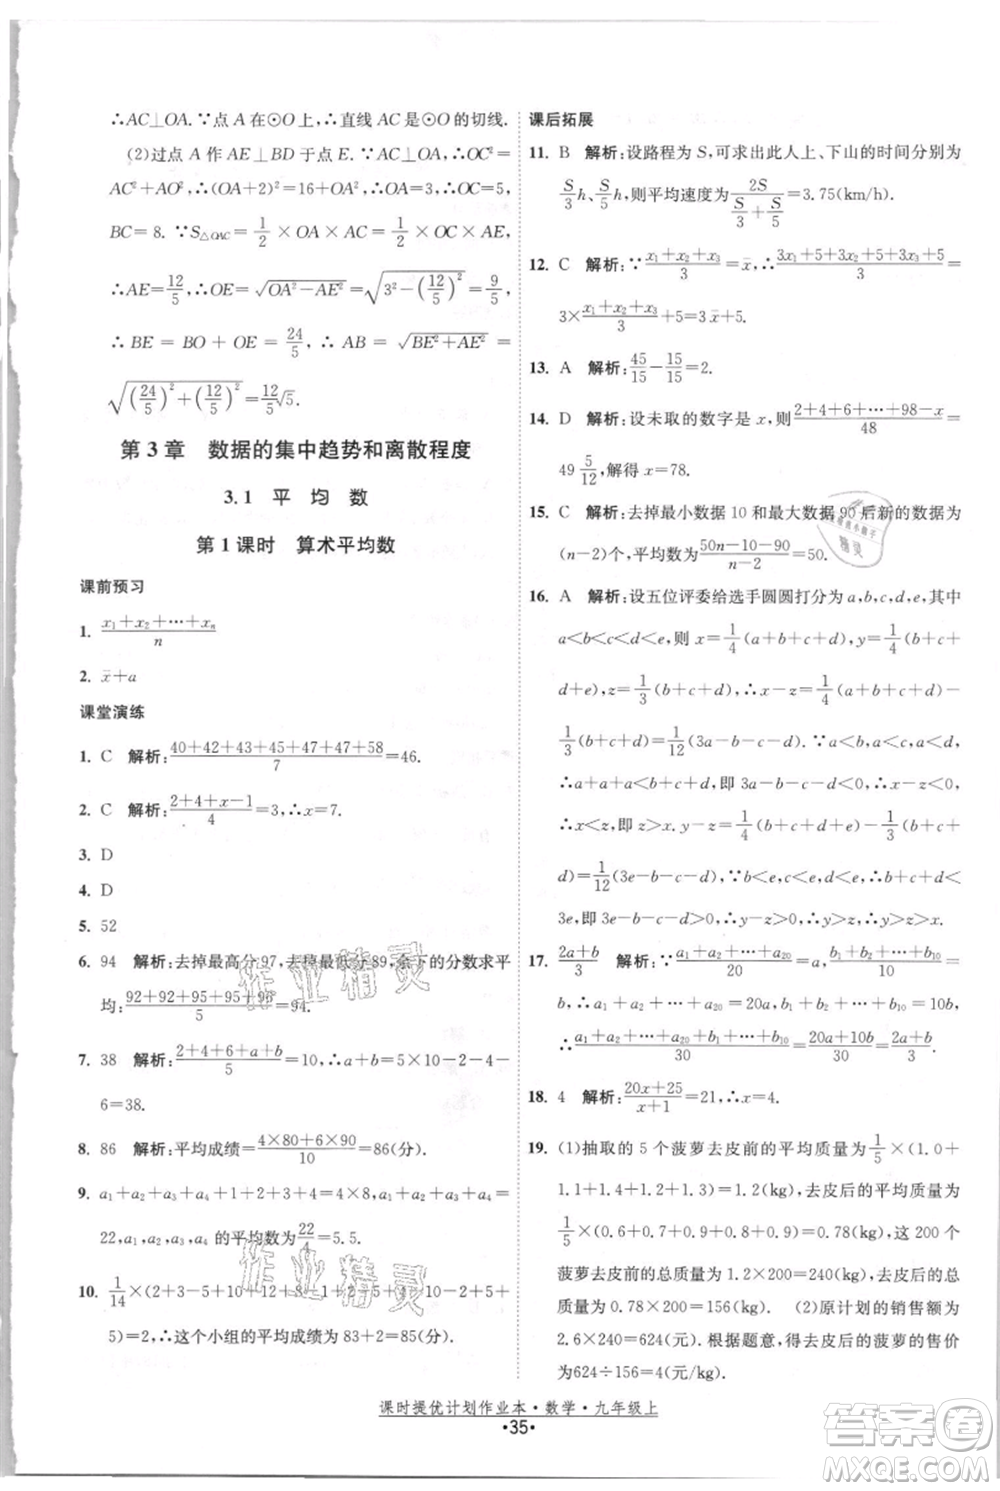 ∴AC⊥OA.∵点 A 在⊙O 上,∴直线 AC 是⊙O 的切线.
(2)过点 A 作 AE⊥BD 于点 E.∵AC⊥OA,∴OC²=
AC²+AO²,∴(OA+2)²=16+OA²,∴OA=3,∴OC=5,
BC=8.∵S△OAC=1/2×OA×AC=1/2×OC×AE,
∴AE=12/5,∴OE=√(OA²-AE²)=√(3²-(12/5)²)=9/5,
∴BE=BO+OE=24/5,∴AB=√(BE²+AE²)=
√((24/5)²+(12/5)²)=12/5√5.
第 3 章 数据的集中趋势和离散程度
3.1 平 均 数
第 1 课时 算术平均数
课前预习
1. (x₁+x₂+…+xₙ)/n
2. x̄+a
课堂演练
1. C 解析:(40+42+43+45+47+47+58)/7=46.
2. C 解析:(2+4+x-1)/4=3,∴x=7.
3. D
4. D
5. 52
6. 94 解析:去掉最高分 97,去掉最低分 89,余下的分数求平
均:(92+92+95+95+96)/5=94.
7. 38 解析:(2+4+6+a+b)/5=10,∴a+b=5×10-2-4-
6=38.
8. 86 解析:平均成绩=(4×80+6×90)/10=86(分).
9. a₁+a₂+a₃+a₄+a₄=3×10-4×2=
22,a₁,a₂,a₃,a₄的平均数为22/4=5.5.
10. 1/14×(2+3-5+10+12+8-1+2-5+4-10-2+5+
5)=2,∴这个小组的平均成绩为 83+2=85(分).
课后拓展
11. B 解析:设路程为 S,可求出此人上、下山的时间分别为
S/3h、S/5h,则平均速度为2S/(S/3+S/5)=3.75(km/h).
12. C 解析:∵(x₁+x₂+x₃)/3=x̄,∴(3x₁+5+3x₂+5+3x₃+5)/3=
3×(x₁+x₂+x₃)/3+5=3x̄+5.
13. A 解析:45/15-15/15=2.
14. D 解析:设未取的数字是 x,(2+4+6+…+98-x)/48=
49 5/12,解得 x=78.
15. C 解析:去掉最小数据 10 和最大数据 90 后新的数据为
(n-2)个,平均数为(50n-10-90)/(n-2)=50.
16. A 解析:设五位评委给选手圆圆打分为 a,b,c,d,e,且
a<b<c<d<e,则 x=1/4(a+b+c+d),y=1/4(b+c+
d+e),z=1/3(b+c+d),∴x-z=1/4(a+b+c+d)-
1/3(b+c+d)=1/12(3a-b-c-d).∵a<b,a<c,a<d,
∴a+a+a<b+c+d,即 3a<b+c+d,即 3a-b-c-d<0,
∴x<z,即 z>x.y-z=1/4(b+c+d+e)-1/3(b+c+
d)=1/12(3e-b-c-d),∵b<e,c<e,d<e,∴b+c+d<
3e,即 3e-b-c-d>0,∴y-z>0,∴y>z,∴y>z>x.
17. (2a+b)/3 解析:∵(a₁+a₂+…+a₂₀)/20=a,(b₁+b₂+…+b₁₀)/10=
b,∴a₁+a₂+…+a₂₀=20a,b₁+b₂+…+b₁₀=10b,
∴(a₁+a₂+…+a₂₀+b₁+b₂+…+b₁₀)/30=(20a+10b)/30=(2a+b)/3.
18. 4 解析:(20x+25)/(x+1)=21,∴x=4.
19. (1)抽取的 5 个菠萝去皮前的平均质量为1/5×(1.0+
1.1+1.4+1.2+1.3)=1.2(kg),去皮后的平均质量为
1/5×(0.6+0.7+0.9+0.8+0.9)=0.78(kg),这 200 个
菠萝去皮前的总质量为 1.2×200=240(kg),去皮后的
总质量为 0.78×200=156(kg). (2)原计划的销售额为
2.6×240=624(元).根据题意,得去皮后的菠萝的售价
为624÷156=4(元/kg).
课时提优计划作业本·数学·九年级上
·35·
作业精灵
作业精灵
精灵
答案圈
MXQE.COM